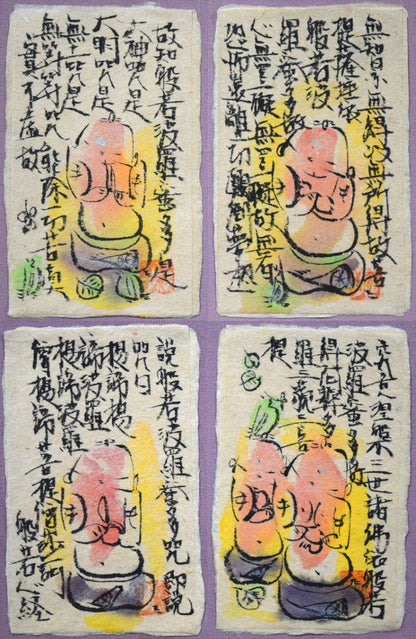 無知亦無得以無所得故菩
提薩埵依
般若波
羅蜜多故
心無罣礙無罣礙故無有
恐怖遠離一切顛倒夢想
究竟涅槃三世諸佛依般若
波羅蜜多故
得阿耨多
羅三藐三菩
提
故知般若波羅蜜多是
大神呪是
大明呪是
無上呪是
無等等呪能除一切苦真
實不虚故
說般若波羅蜜多呪即說
呪曰
揭諦揭
諦波羅
揭諦波羅
僧揭諦菩提薩婆訶
般若心経